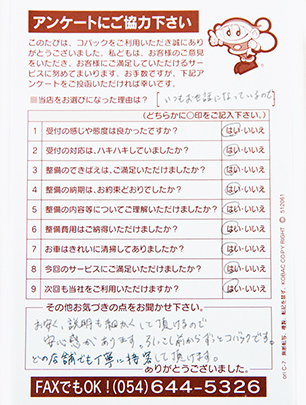 アンケートにご協力下さい
このたびは、コバックをご利用いただき誠にあり
がとうございました。私どもは、お客様のご意見を
いただき、お客様にご満足していただけるサー
ビスに努めてまいります。お手数ですが、下記ア
ンケートをご投函いただければ幸いです。
※当店をお選びになった理由は?
[いつもお世話になっているので]
(どちらかに○印をご記入下さい。)
1 受付の感じや態度は良かったですか? はい・いいえ
2 受付の対応は、ハキハキしていましたか? はい・いいえ
3 整備のできばえは、ご満足いただけましたか? はい・いいえ
4 整備の納期は、お約束どおりでしたか? はい・いいえ
5 整備の内容等についてご理解いただけましたか? はい・いいえ
6 整備費用はご納得いただけましたか? はい・いいえ
7 お車はきれいに清掃してありましたか? はい・いいえ
8 今回のサービスにご満足いただけましたか? はい・いいえ
9 次回も当社をご利用いただけますか? はい・いいえ
その他お気づきの点をお聞かせ下さい。
お安く、説明も細かくして頂けるので
安心感があります。引っこし前からずっとコバックです。
どの店舗でも丁寧に接客して頂けます。
ありがとうございました。
FAXでもOK!(054)644-5326
ori C-7 無断転写、複製、転記を禁ず。KOBAC COPY RIGHT © 512061